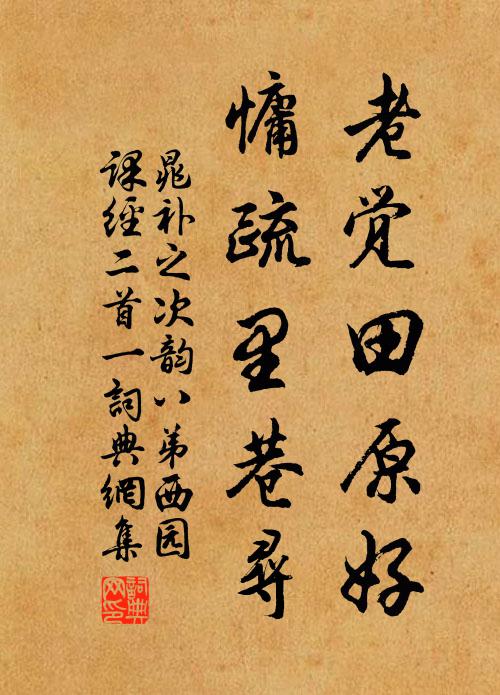 老觉田原好
慵疏里巷寻
晁补之次韵八弟西园
课經二首一詞典網集
詞典
网印